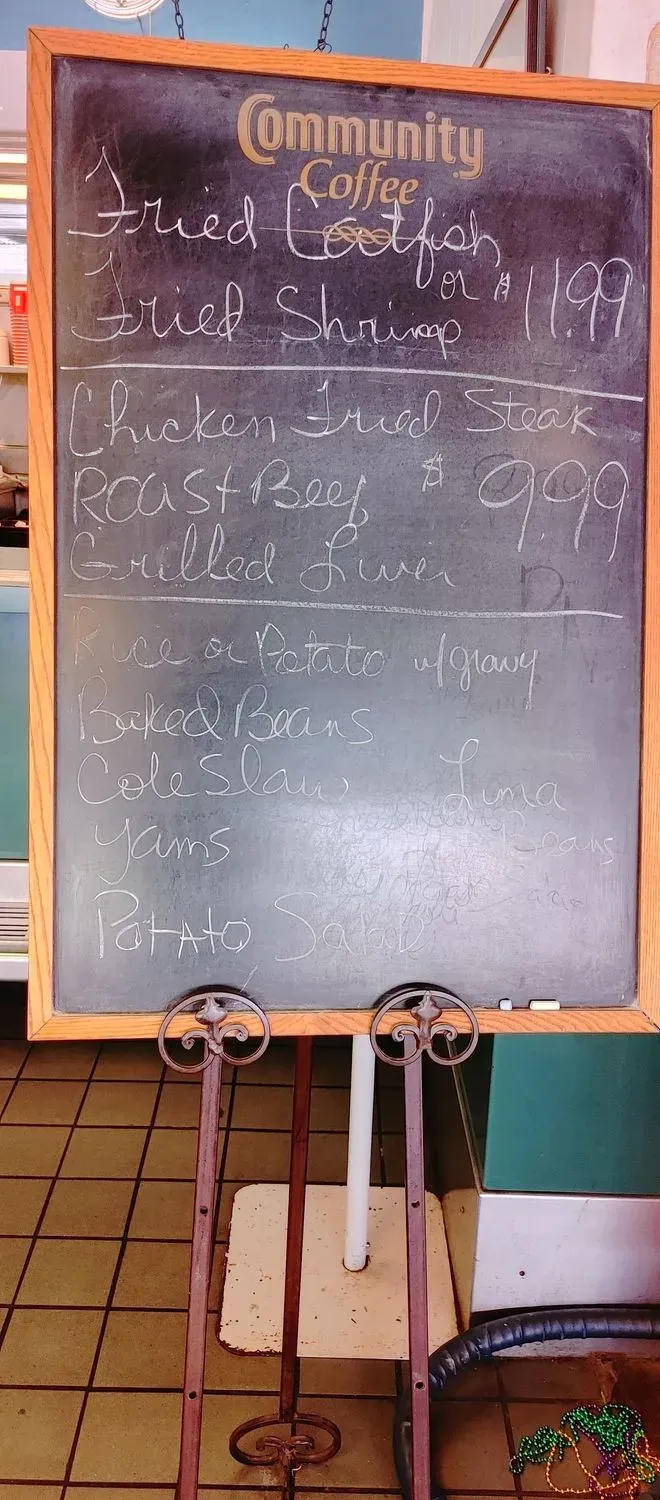 Community
Coffee
Fried Catfish
or $11.99
Fried Shrimp
Chicken Fried Steak
Roast Beef $ 9.99
Grilled Liver
Rice or Potato w/gravy
Baked Beans
Cole Slaw Lima
Yams Beans
Potato Salad